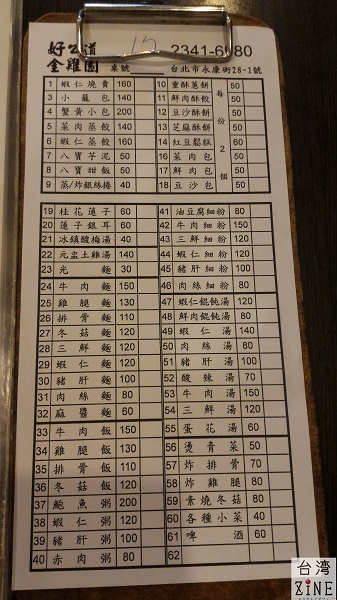 好公道
金雞園
桌號
15
2341-6980
台北市永康街28-1號
1 蝦仁燒賣 160
2 小籠包 140
4 蟹黃小包 200
5 菜肉蒸餃 140
6 蝦仁蒸餃 160
7 八寶芋泥 50
8 八寶甜飯 50
9 蒸/炸銀絲捲 40
10 重酥蔥餅 50
11 鮮肉酥餃 50
12 豆沙酥餅 50
13 芝麻酥餅 50
14 紅豆鬆糕 60
16 菜肉包 50
17 鮮肉包 50
18 豆沙包 50
每份2個
19 桂花蓮子 60
20 蓮子銀耳 60
21 冰鎮酸梅湯 40
22 元盅土雞湯 140
23 光麵 30
24 牛肉麵 150
25 雞腿麵 130
26 排骨麵 110
27 冬菇麵 120
28 三鮮麵 120
29 蝦仁麵 120
30 豬肝麵 100
31 肉絲麵 80
32 麻醬麵 60
33 牛肉飯 150
34 雞腿飯 130
35 排骨飯 110
36 冬菇飯 120
37 鮑魚粥 200
38 蝦仁粥 120
39 豬肝粥 100
40 赤肉粥 80
41 油豆腐細粉 80
42 牛肉細粉 150
43 三鮮細粉 120
44 蝦仁細粉 120
45 豬肝細粉 100
46 肉絲細粉 80
47 蝦仁餛飩湯 120
48 鮮肉餛飩湯 80
49 蝦仁湯 140
50 肉絲湯 80
51 豬肝湯 100
52 酸辣湯 70
53 牛肉湯 150
54 三鮮湯 120
55 蛋花湯 60
56 燙青菜 50
57 炸排骨 70
58 炸雞腿 80
59 素燒冬菇 80
60 各種小菜 40
61 啤酒 60
62
台湾
ZINE